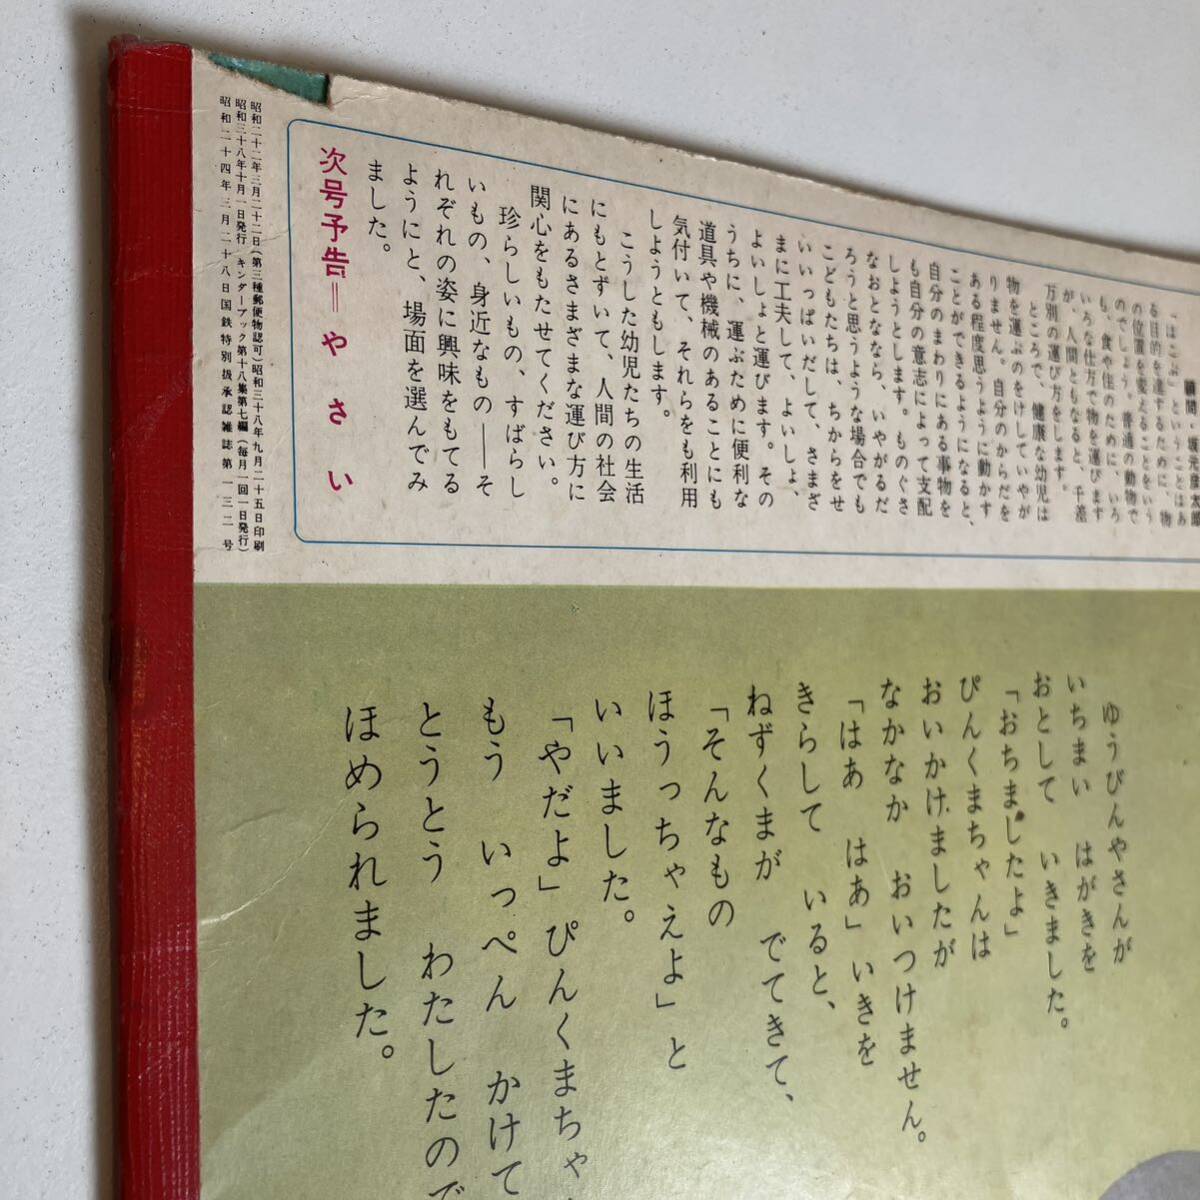 顧問・坂元彦太郎
「はこぶ」ということはあ
る目的を達するために、物
の位置を変えることをいう
のでしょう。普通の動物で
も、食や住のために、いろ
いろな仕方で物を運びます
が、人間ともなると、千差
万別の運び方をします。
ところで、健康な幼児は
物を運ぶのをけしていやが
りません。自分のからだを
ある程度思うように動かす
ことができるようになると、
自分のまわりにある事物を
も自分の意志によって支配
しようとします。ものぐさ
なおとななら、いやがるだ
ろうと思うような場合でも
こどもたちは、ちからをせ
いいっぱいだして、さまざ
まに工夫して、よいしょ、
よいしょと運びます。その
うちに、運ぶために便利な
道具や機械のあることにも
気付いて、それらをも利用
しようともします。
こうした幼児たちの生活
にもとずいて、人間の社会
にあるさまざまな運び方に
関心をもたせてください。
珍らしいもの、すばらし
いもの、身近なもの――そ
れぞれの姿に興味をもてる
ようにと、場面を選んでみ
ました。
次号予告＝やさい
昭和二十二年三月二十二日(第三種郵便物認可)昭和三十八年九月二十五日印刷
昭和三十八年十月一日発行 キンダーブック第十八集第七編(毎月一回一日発行)
昭和二十四年三月二十八日国鉄特別扱承認雑誌第一三二号
ゆうびんやさんが
いちまい はがきを
おとして いきました。
「おちましたよ」
ぴんくまちゃんは
おいかけましたが
なかなか おいつけません。
「はあ はあ」いきを
きらして いると、
ねずくまが でてきて、
「そんなもの
ほうっちゃえよ」と
いいました。
「やだよ」ぴんくまちゃ
もう いっぺん かけて
とうとう わたしたので
ほめられました。